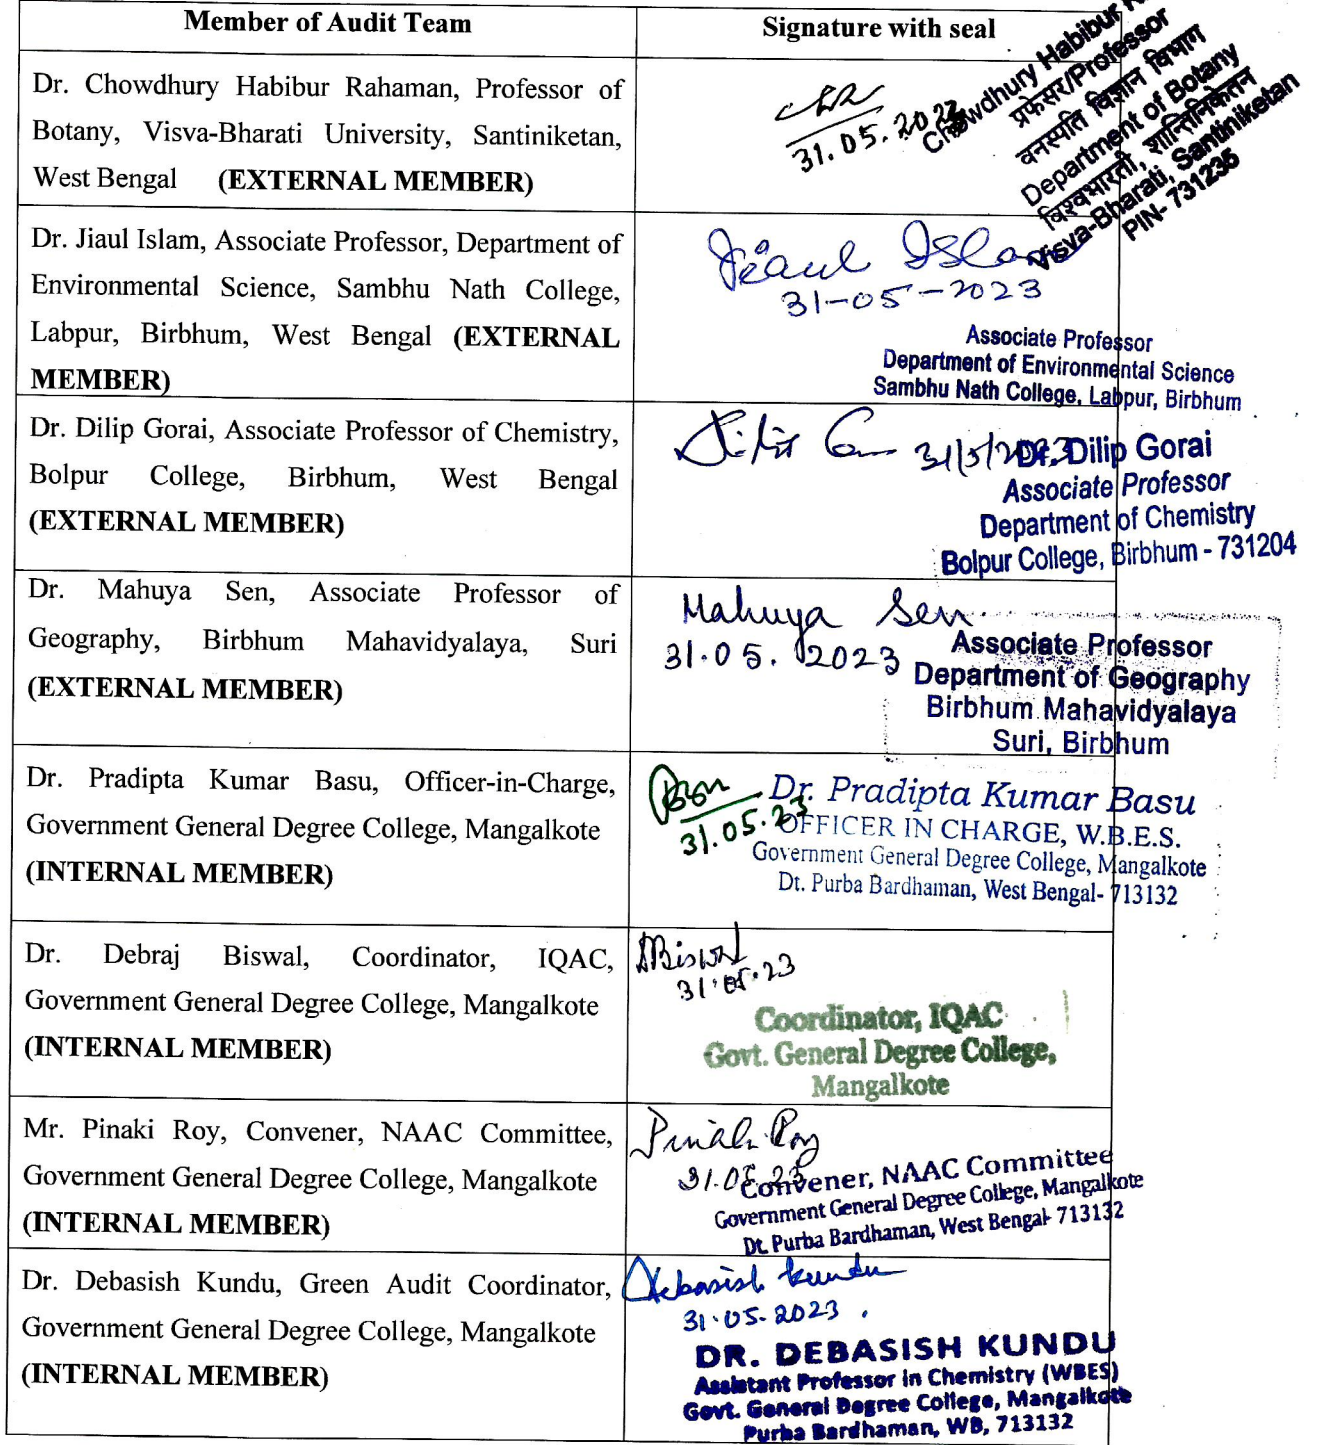 Member of Audit Team
Signature with seal
Dr. Chowdhury Habibur Rahaman, Professor of
Botany, Visva-Bharati University, Santiniketan,
West Bengal (EXTERNAL MEMBER)
31.05.2023
Chowdhury Habibur
प्रफेसर/Professor
वनस्पति विज्ञान विभाग
Department of Botany
विश्वभारती, शान्तिनिकेतन
Visva-Bharati, Santiniketan
PIN- 731235
Dr. Jiaul Islam, Associate Professor, Department of
Environmental Science, Sambhu Nath College,
Labpur, Birbhum, West Bengal (EXTERNAL
MEMBER)
Jiaul Islam
31-05-2023
Associate Professor
Department of Environmental Science
Sambhu Nath College, Labpur, Birbhum
Dr. Dilip Gorai, Associate Professor of Chemistry,
Bolpur College, Birbhum, West Bengal
(EXTERNAL MEMBER)
31/5/2023
Dr. Dilip Gorai
Associate Professor
Department of Chemistry
Bolpur College, Birbhum - 731204
Dr. Mahuya Sen, Associate Professor of
Geography, Birbhum Mahavidyalaya, Suri
(EXTERNAL MEMBER)
Mahuya Sen
31.05.2023
Associate Professor
Department of Geography
Birbhum Mahavidyalaya
Suri, Birbhum
Dr. Pradipta Kumar Basu, Officer-in-Charge,
Government General Degree College, Mangalkote
(INTERNAL MEMBER)
31.05.23
Dr. Pradipta Kumar Basu
OFFICER IN CHARGE, W.B.E.S.
Government General Degree College, Mangalkote
Dt. Purba Bardhaman, West Bengal- 713132
Dr. Debraj Biswal, Coordinator, IQAC,
Government General Degree College, Mangalkote
(INTERNAL MEMBER)
DBiswal
31.05.23
Coordinator, IQAC
Govt. General Degree College,
Mangalkote
Mr. Pinaki Roy, Convener, NAAC Committee,
Government General Degree College, Mangalkote
(INTERNAL MEMBER)
Pinaki Roy
31.05.23
Convener, NAAC Committee
Government General Degree College, Mangalkote
Dt. Purba Bardhaman, West Bengal- 713132
Dr. Debasish Kundu, Green Audit Coordinator,
Government General Degree College, Mangalkote
(INTERNAL MEMBER)
Debasish Kundu
31.05.2023.
DR. DEBASISH KUNDU
Assistant Professor in Chemistry (WBES)
Govt. General Degree College, Mangalkote
Purba Bardhaman, WB, 713132